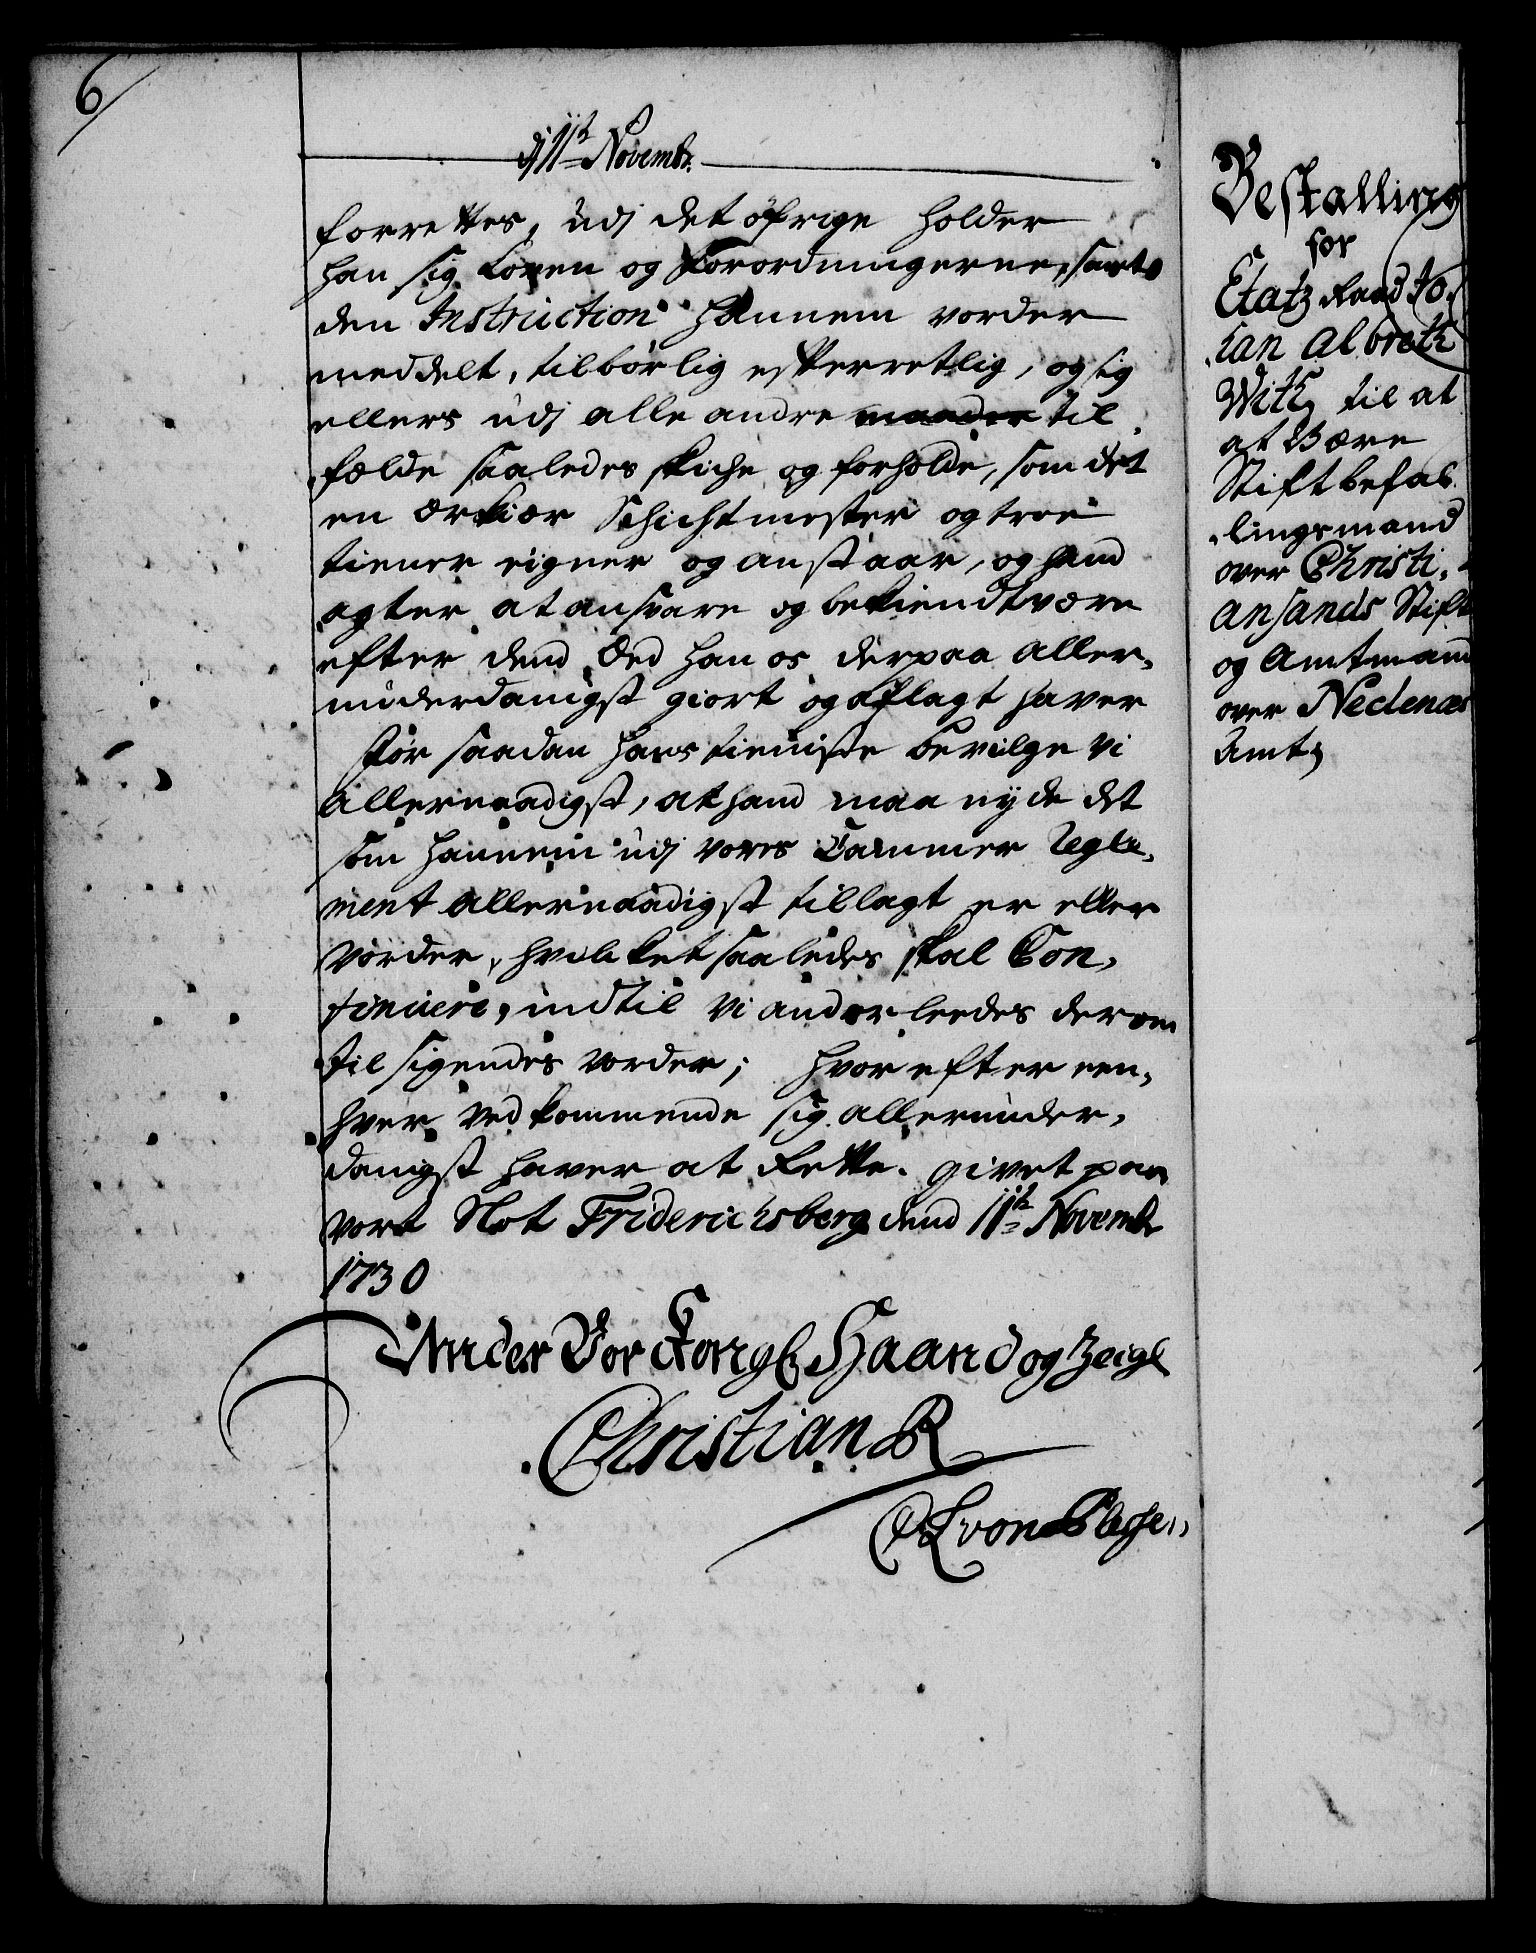 6
d 11te Novembr.
forrettes, udj det öfrige holder
han sig Loven og Forordningerne, samt
den Instruction hannem vorder
meddelt, tilbörlig efterretlig, og sig
ellers udj alle andre maader til,
fælde saaledes skiche og forholde, som det
en ærkiær Schichtmester og troe
tiener eigner og anstaar, og hand
agter at ansvare og bekiendt være
efter dend Eed han os derpaa aller,
underdanigst giort og aflagt haver
For saadan hans tieniste bevilge Vi
allernaadigst, at hand maa nyde det
som hannem udj vores Cammer Regle,
ment allernaadigst tillagt er eller
vorder, hvilket saaledes skal Con,
tinuere, indtil Vi anderleedes derom
til sigendes vorder; Hvorefter een,
hver vedkommende sig allerunder,
danigst haver at Rette. Givet paa
vort Slot Friderichsberg dend 11te Novembr
1730
Under Vor Kongl Haand og Zeigl
Christian R
C A von Plessen
Bestalling
for
Etatz Raad Jo,
han Albreth
With til at
at Være
Stiftbefal
lingsmand
over Christi,
ansands Stift
og Amtmand
over Nedenæs
Amt